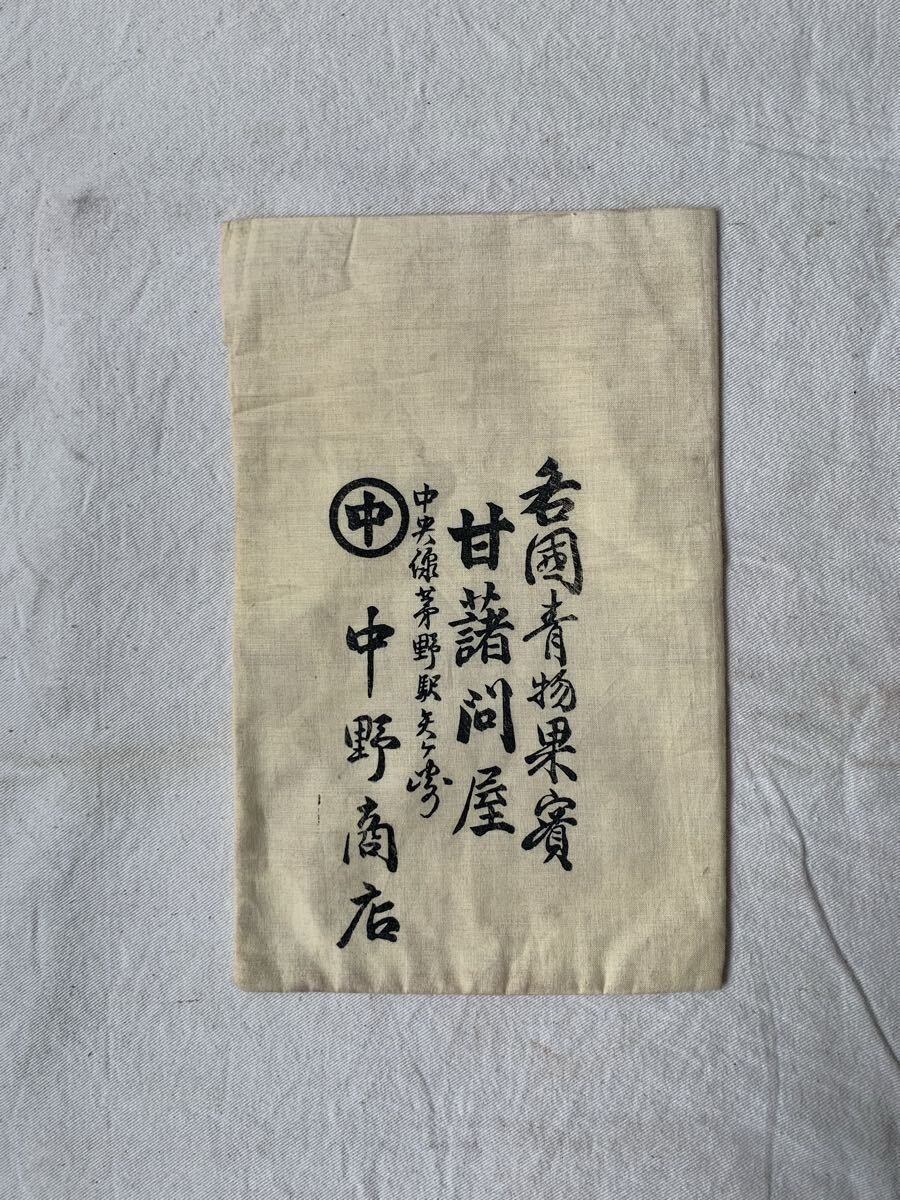 各國青物果實
甘藷問屋
中央線茅野駅矢ケ崎
中
中野商店